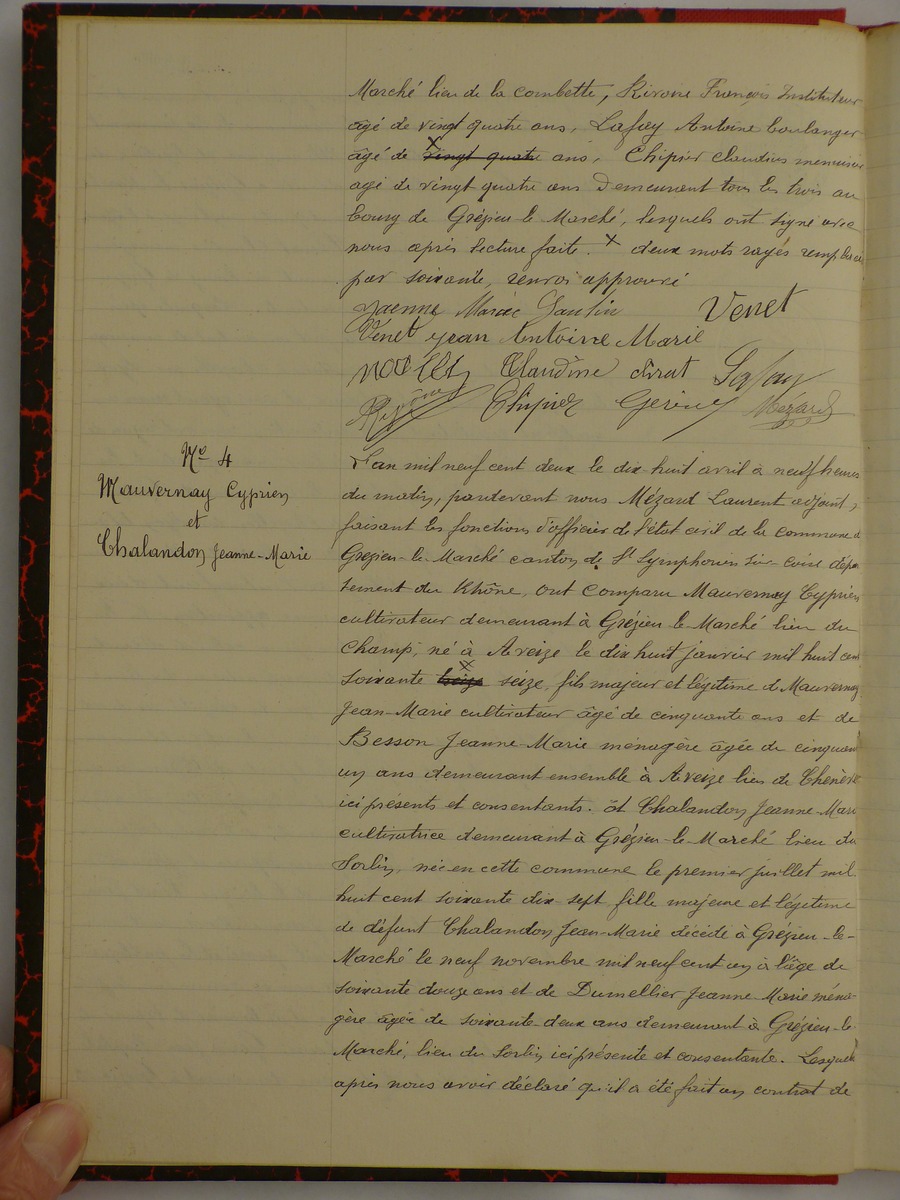 Marché lieu de la combette, Rivoire François Instituteur
âgé de vingt quatre ans, Lafay Antoine boulanger
âgé de vingt quatre ans, Chipier Claudius menuisier
agé de vingt quatre ans Demeurant tous les trois au
bourg de Grézieu-le-Marché, lesquels ont signé avec
nous après lecture faite. X deux mots rayés remplacés
par soixante, renvoi approuvé
Marie Venet
Venet Jean Antoine Marie
Claudine Lafay
Chipier Mézard
No 4
Mauvernay Cyprien
et
Chalandon Jeanne-Marie
L'an mil neuf cent deux le dix huit avril à neuf heures
du matin, pardevant nous Mézard Laurent adjoint,
faisant les fonctions d'officier de l'état civil de la commune de
Grézieu-le-Marché canton de St Symphorien sur-coise dépar
tement du Rhône, ont comparu Mauvernay Cyprien
cultivateur demeurant à Grézieu-le-Marché lieu du
Champ, né à Aveize le dix huit janvier mil huit cent
soixante X seize, fils majeur et légitime de Mauvernay
Jean-Marie cultivateur âgé de cinquante ans et de
Besson Jeanne-Marie ménagère âgée de cinquante
un ans demeurant ensemble à Aveize lieu de
ici présents et consentants. Et Chalandon Jeanne-Marie
cultivatrice demeurant à Grézieu-le-Marché lieu du
Sorbin, née en cette commune le premier juillet mil
huit cent soixante dix sept fille majeure et légitime
de défunt Chalandon Jean-Marie décédé à Grézieu-le-
Marché le neuf novembre mil neuf cent un à l'âge de
soixante douze ans et de Dumellier Jeanne Marie ména-
gère âgée de soixante deux ans demeurant à Grézieu-le-
Marché, lieu du Sorbin ici présente et consentante. Lesquels
après nous avoir déclaré qu'il a été fait un contrat de